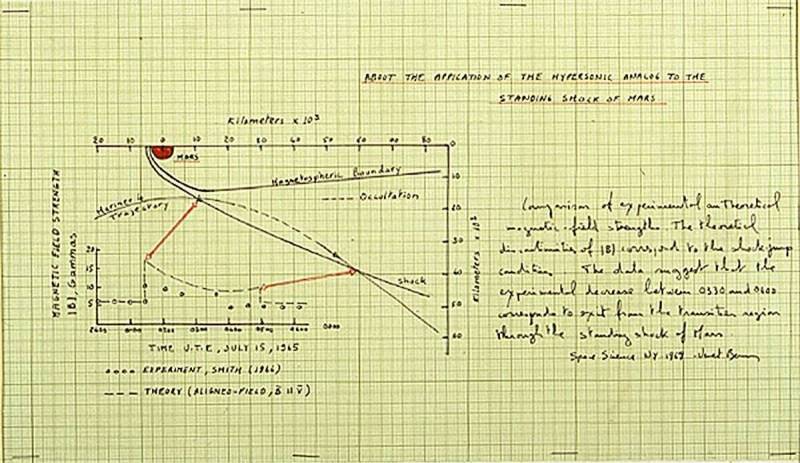 ABOUT THE APPICATION OF THE HYPERSONIC ANALOG TO THE
STANDING SHOCK OF MARS
Kilometers x 10³
20 10 0 10 20 30 40 50 60 70 80
MARS
Magnetospheric Boundary
Mariner 4
Trajectory
Occultation
shock
0
10
20
30
40
50
60
Kilometers x 10³
MAGNETIC FIELD STRENGTH
|B|, Gammas
20
15
10
5
TIME U.T.E, JULY 15, 1965
EXPERIMENT, SMITH (1966)
THEORY (ALIGNED-FIELD, B || V)
Comparison of experimental an Theoretical
magnetic field strengths. The theoretical
discontinuities of |B| correspond to the shock jump
conditions. The data suggest that the
experimental decrease between 0330 and 0600
corresponds to exit from the transition region
through the standing shock of Mars
Space Science N.Y. 1969